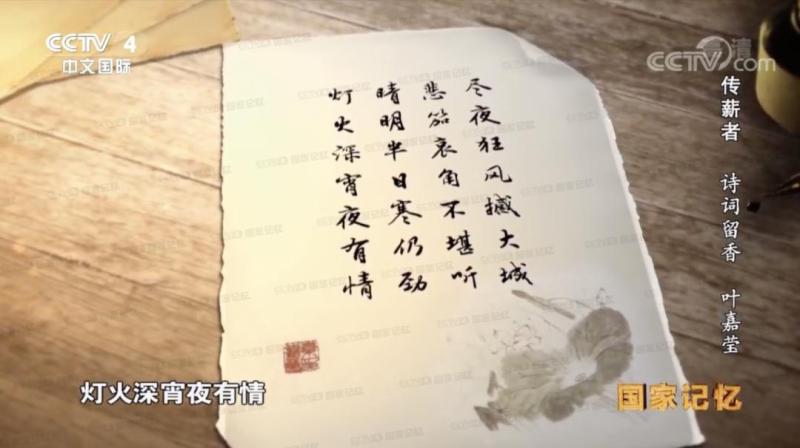 CCTV 4
中文国际
CCTV.com
高清
尽夜狂风撼大城
悲笳哀角不堪听
晴明半日寒仍劲
灯火深宵夜有情
传薪者 诗词留香 叶嘉莹
灯火深宵夜有情
国家记忆